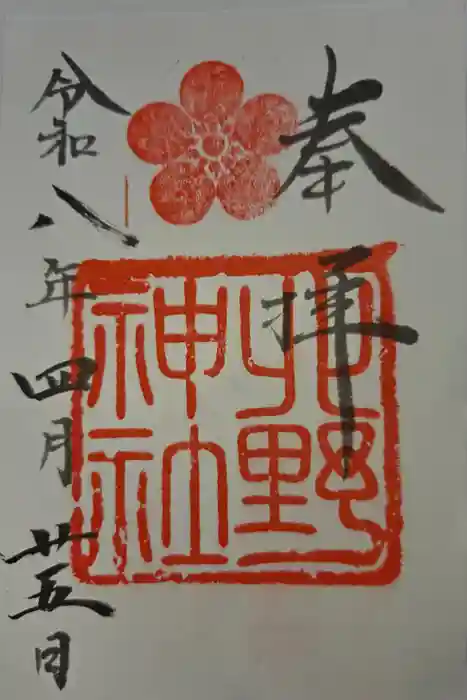 奉拝
北野
神社
令和八年四月廿五日